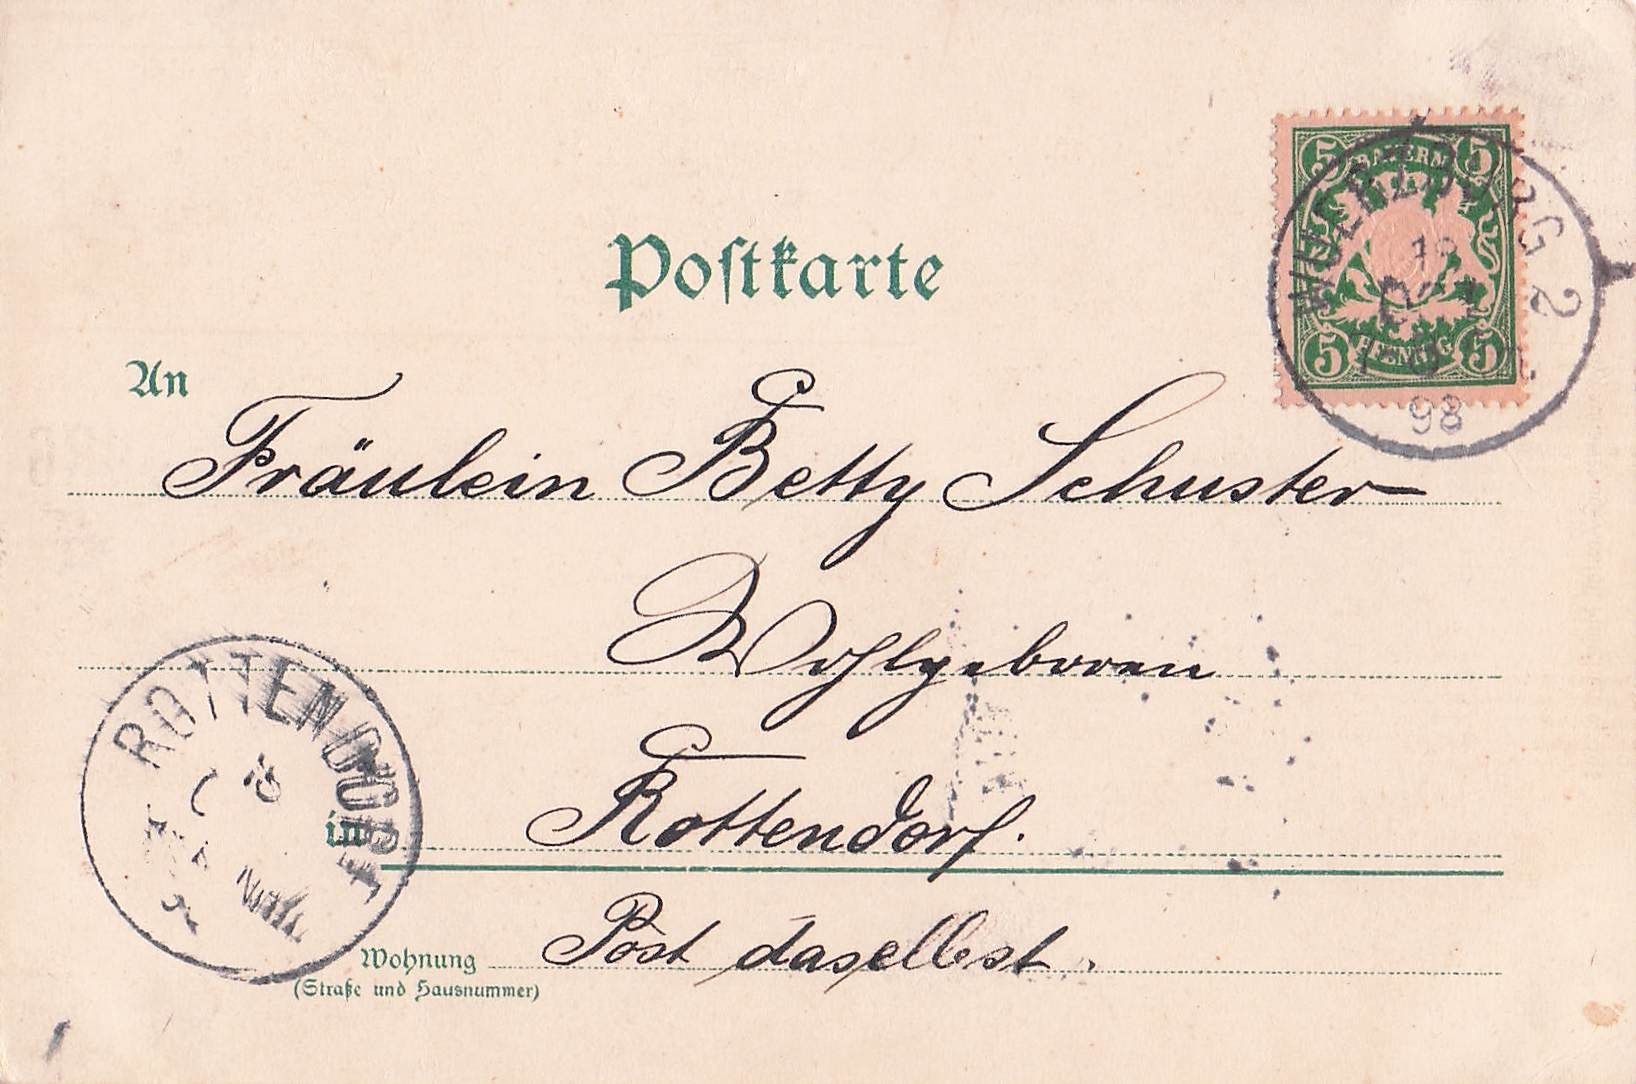 Postkarte
5 BAYERN 5
5 PFENNIG 5
WUERZBURG 2
98
An
Fräulein Betty Schuster
Wohlgeboren
in Rottendorf.
ROTTENDORF
Post daselbst.
Wohnung
(Straße und Hausnummer)